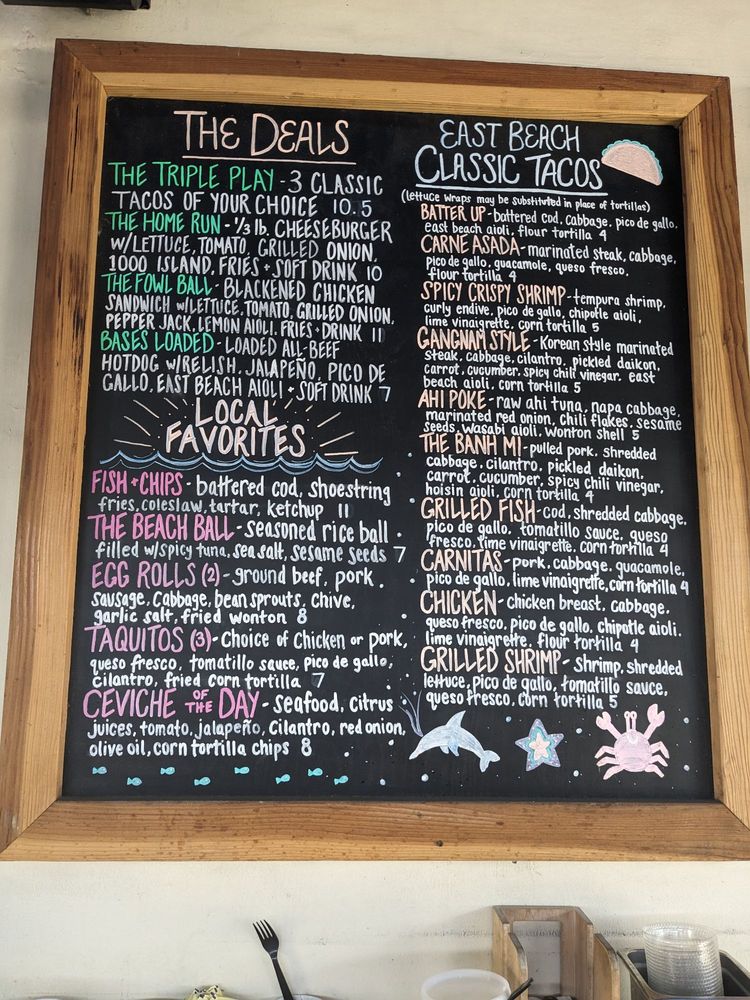 THE DEALS
THE TRIPLE PLAY - 3 CLASSIC
TACOS OF YOUR CHOICE 10.5
THE HOME RUN - 1/3 lb. CHEESEBURGER
W/LETTUCE, TOMATO, GRILLED ONION,
1000 ISLAND, FRIES + SOFT DRINK 10
THE FOWL BALL - BLACKENED CHICKEN
SANDWICH W/LETTUCE, TOMATO, GRILLED ONION,
PEPPER JACK, LEMON AIOLI, FRIES + DRINK 11
BASES LOADED - LOADED ALL-BEEF
HOTDOG W/RELISH, JALAPEÑO, PICO DE
GALLO, EAST BEACH AIOLI + SOFT DRINK 7
LOCAL
FAVORITES
FISH + CHIPS - battered cod, shoestring
fries, coleslaw, tartar, ketchup 11
THE BEACH BALL - seasoned rice ball
filled w/spicy tuna, sea salt, sesame seeds 7
EGG ROLLS (2) - ground beef, pork,
sausage, cabbage, bean sprouts, chive,
garlic salt, fried wonton 8
TAQUITOS (3) - Choice of Chicken or pork,
queso fresco, tomatillo sauce, pico de gallo,
cilantro, fried corn tortilla 7
CEVICHE OF THE DAY - seafood, citrus
juices, tomato, jalapeño, cilantro, red onion,
olive oil, corn tortilla chips 8
EAST BEACH
CLASSIC TACOS
(lettuce wraps may be substituted in place of tortillas)
BATTER UP - battered cod, cabbage, pico de gallo,
east beach aioli, flour tortilla 4
CARNE ASADA - marinated steak, cabbage,
pico de gallo, guacamole, queso fresco,
flour tortilla 4
SPICY CRISPY SHRIMP - tempura shrimp,
curly endive, pico de gallo, chipotle aioli,
lime vinaigrette, corn tortilla 5
GANGNAM STYLE - Korean style marinated
steak, cabbage, cilantro, pickled daikon,
carrot, cucumber, spicy chili vinegar, east
beach aioli, corn tortilla 5
AHI POKE - raw ahi tuna, napa cabbage,
marinated red onion, chili flakes, sesame
seeds, wasabi aioli, wonton shell 5
THE BANH MI - pulled pork, shredded
cabbage, cilantro, pickled daikon,
carrot, cucumber, spicy chili vinegar,
hoisin aioli, corn tortilla 4
GRILLED FISH - cod, shredded cabbage,
pico de gallo, tomatillo sauce, queso
fresco, lime vinaigrette, corn tortilla 4
CARNITAS - pork, cabbage, guacamole,
pico de gallo, lime vinaigrette, corn tortilla 4
CHICKEN - chicken breast, cabbage,
queso fresco, pico de gallo, chipotle aioli,
lime vinaigrette, flour tortilla 4
GRILLED SHRIMP - shrimp, shredded
lettuce, pico de gallo, tomatillo sauce,
queso fresco, corn tortilla 5